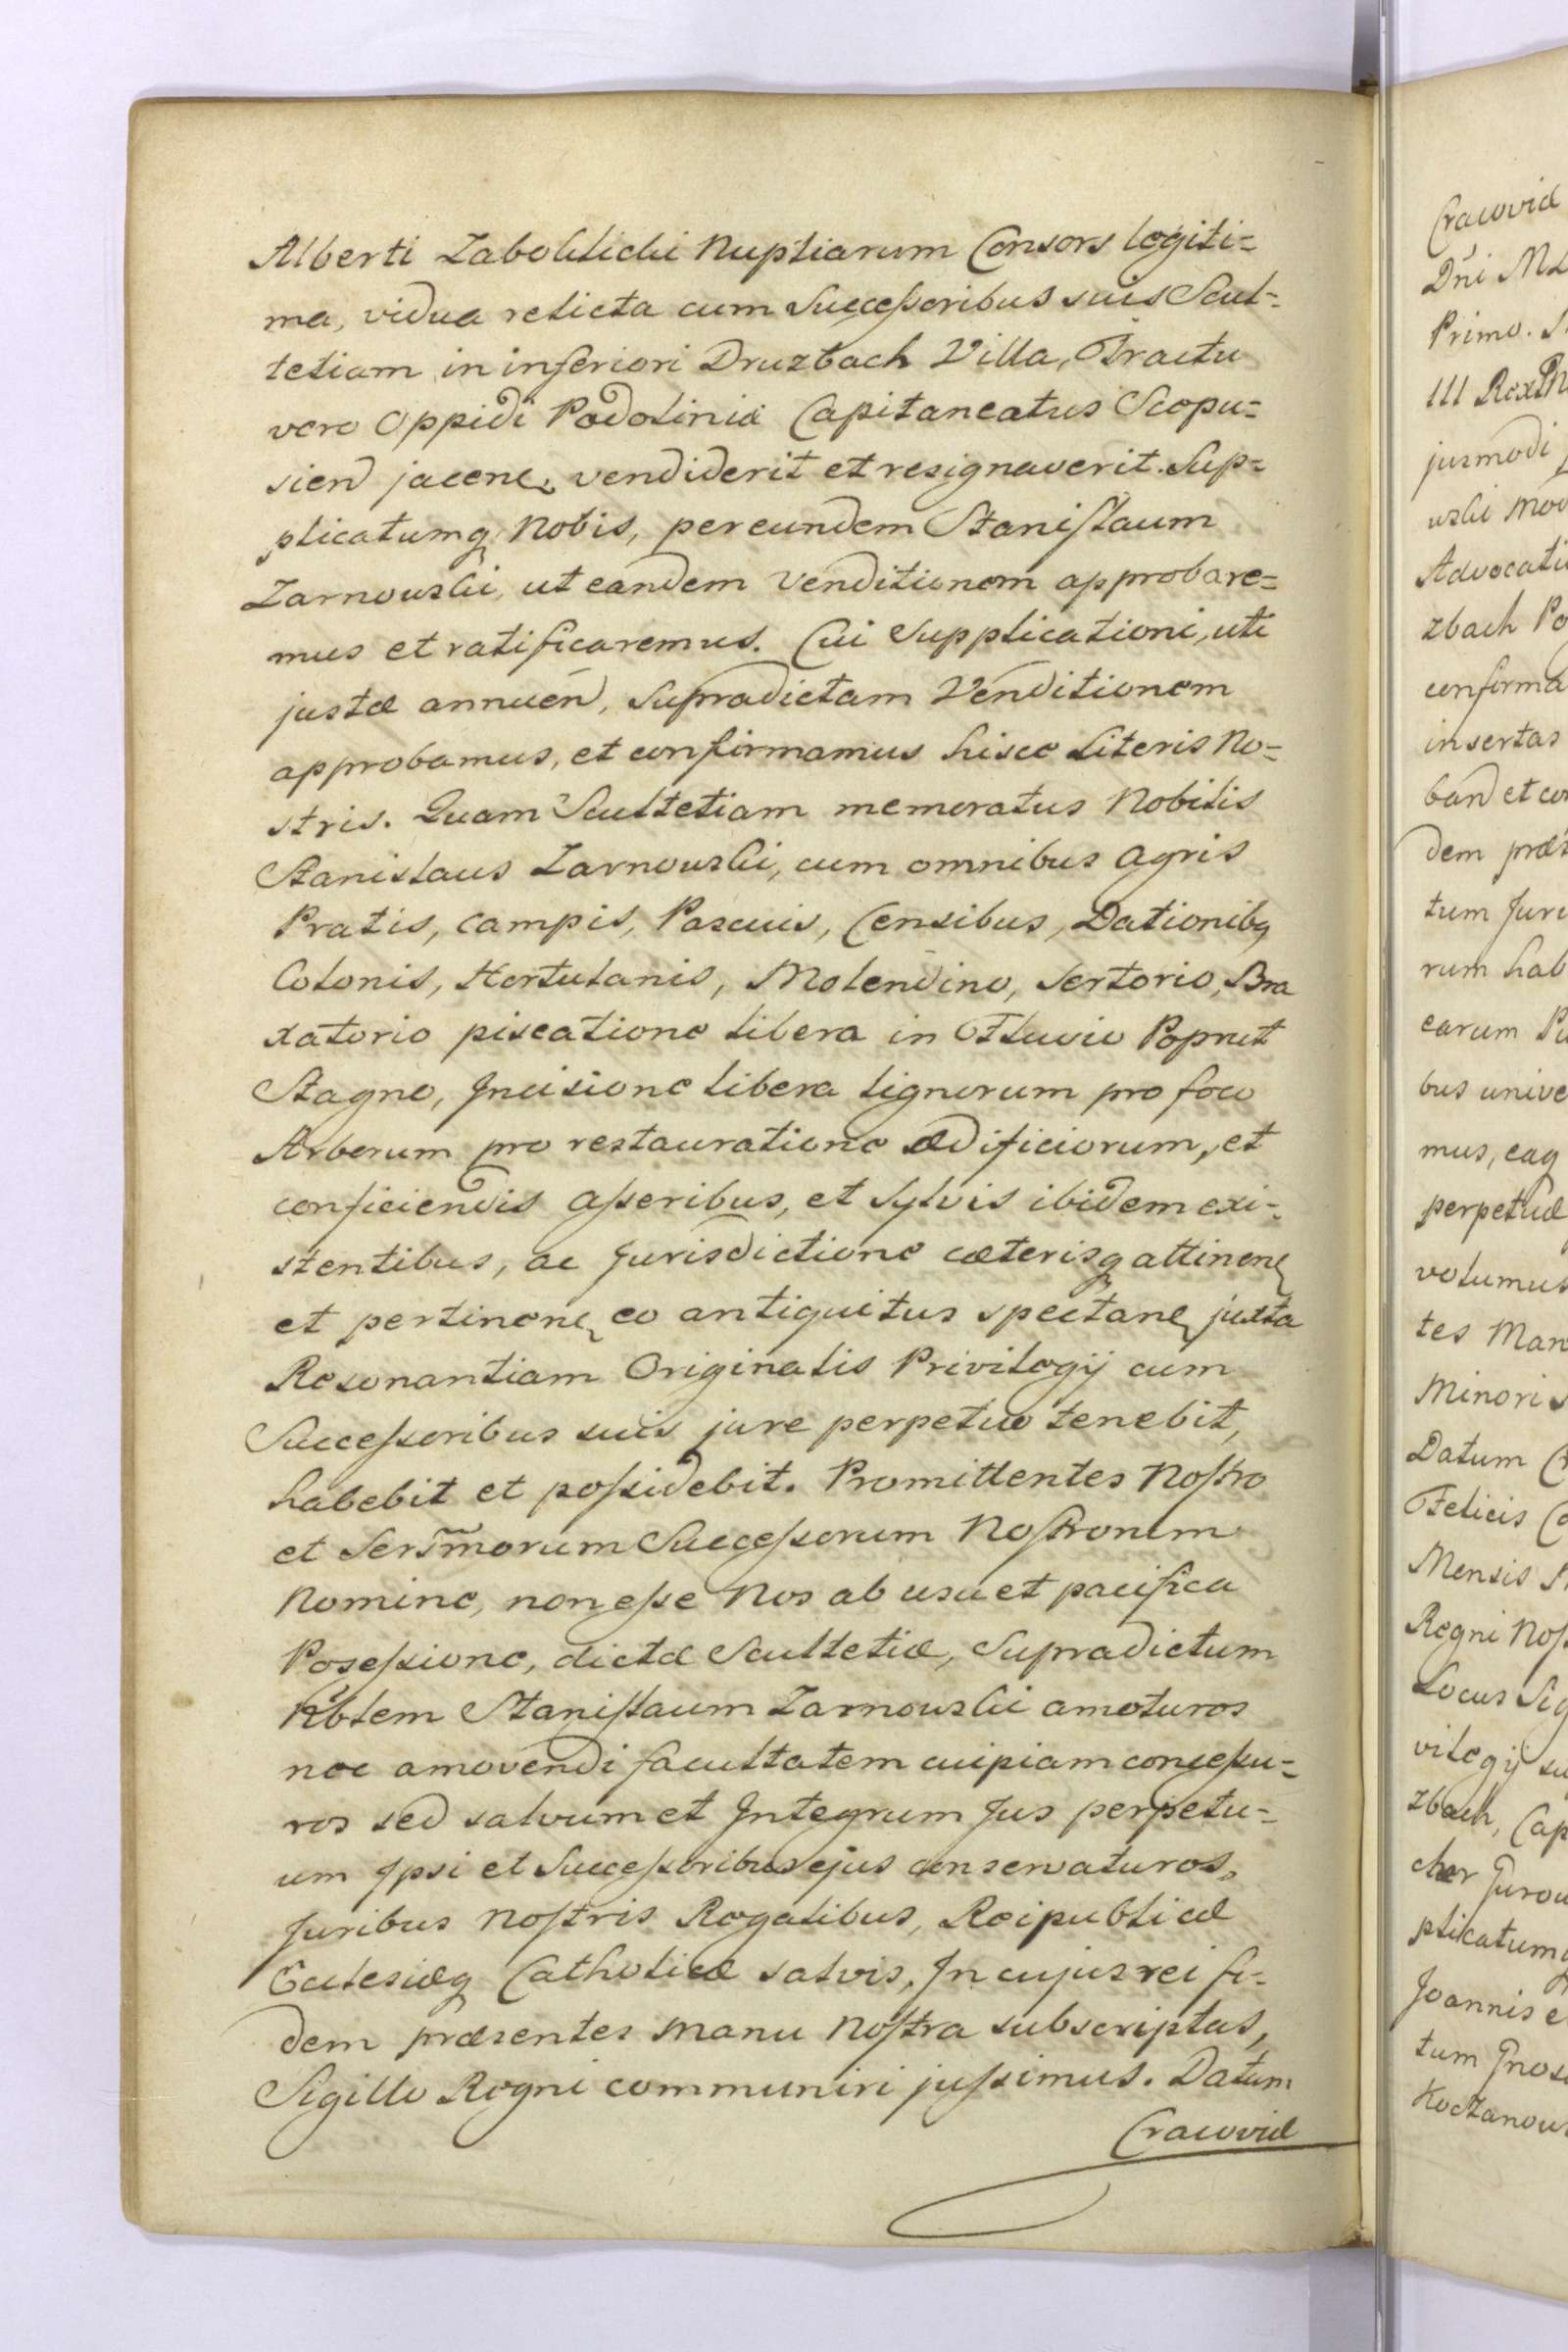 Alberti Zaboklicki Nuptiarum Consors legiti=
ma, vidua relicta cum Succeſsoribus suis Scul=
tetiam in inferiori Druzbach Villa, Tractu
vero Oppidi Podoliniæ Capitaneatus Scepu=
sien jacen, vendiderit et resignaverit. Sup=
plicatumq Nobis, per eundem Staniſlaum
Zarnowski, ut eandem Venditionem approbare=
mus et ratificaremus. Cui Supplicationi, uti
justæ annuen, Supradictam Venditionem
approbamus, et confirmamus hisce Literis No=
stris. Quam Scultetiam memoratus Nobilis
Stanislaus Zarnowski, cum omnibus Agris
Pratis, Campis, Pascuis, Censibus, Dationibq
Colonis, Hortulanis, Molendino, Sertorio, Bra
xatorio piscatione libera in Fluvio Poprut
Stagno, Incisione libera lignorum pro foco
Arborum pro restauratione Ædificiorum, et
conficiendis Aſseribus, et Sylvis ibidem exi=
stentibus, ac Jurisdictione cæterisq attinen
et pertinen eo antiquitus spectan juxta
Resonantiam Originalis Privilegij cum
Succeſsoribus suis jure perpetuo tenebit,
habebit et poſsidebit. Promittentes Noſtro
et Serm̃morum Succeſsorum Noſtrorum
Nomine, non eſse Nos ab usu et pacifica
Poseſsione, dictæ Scultetiæ, Supradictum
Nblem Staniſlaum Zarnowski amoturos
nec amovendi facultatem cuipiam conceſsu=
ros sed salvum et Integrum Jus perpetu=
um Ipsi et Succeſsoribus ejus conservaturos,
Juribus Noſtris Regalibus, Reipublicæ
Eclesiæq Catholicæ salvis. In cujus rei fi=
dem præsentes Manu Noſtra subscriptas,
Sigillo Regni communiri juſsimus. Datum
Cracoviæ
Cracoviæ
Dńi
Primo.
III
jusmodi
uski
Advocati
zbach
confirma
insertas
band et
dem
tum
rum hab
earum
bus unive
mus, eaq
perpetuæ
volumus
tes Man
Minori
Datum
Felicis
Mensis
Regni
Locus
vilegij
zbach,
cher
plicatum
Joannis
tum